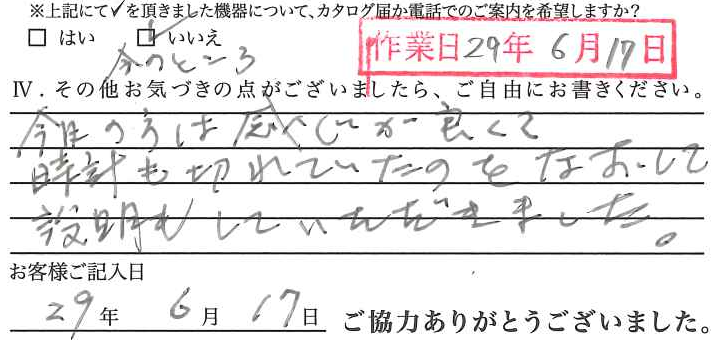 ※上記にて✓を頂きました機器について、カタログ届か電話でのご案内を希望しますか?
☐ はい ☑ いいえ
今のところ
作業日29年 6月17日
Ⅳ．その他お気づきの点がございましたら、ご自由にお書きください。
今日の方は感じが良くて
時計も切れていたのをなおして
説明もしていただきました。
お客様ご記入日
29年 6月 17日 ご協力ありがとうございました。